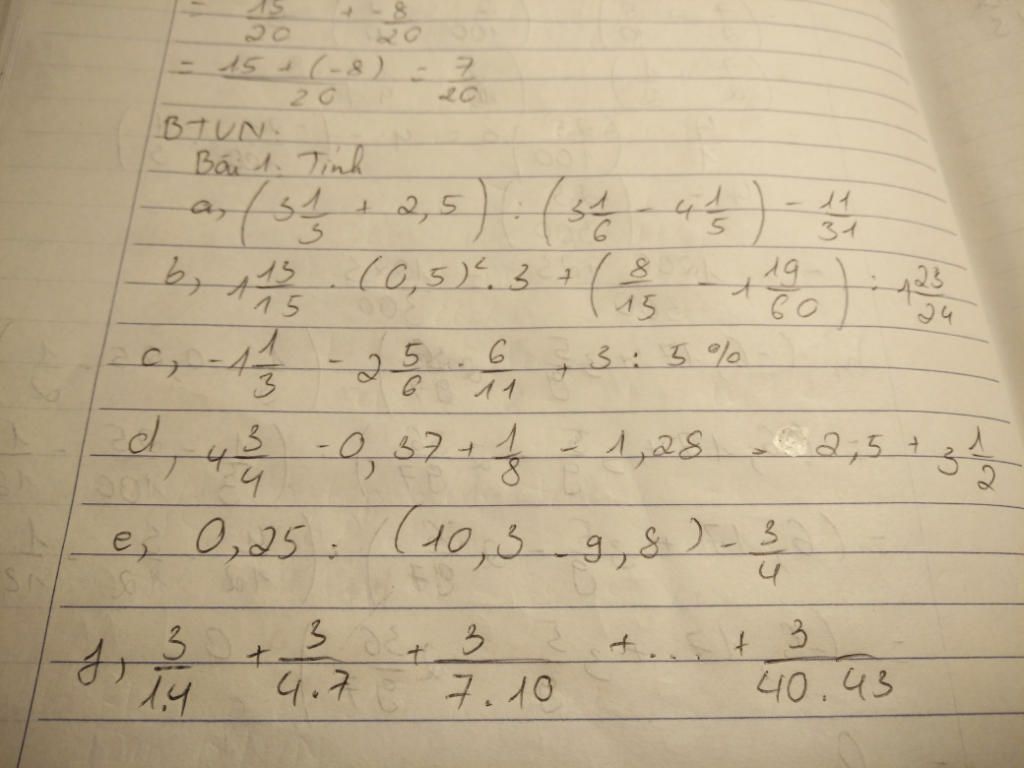 = 15/20 + -8/20
= 15 + (-8)/20 = 7/20
BTVN.
Bài 1. Tính
a, (3 1/3 + 2,5) : (3 1/6 - 4 1/5) - 11/31
b, 1 13/15 . (0,5)² . 3 + (8/15 - 1 19/60) : 1 23/24
c, -1 1/3 - 2 5/6 . 6/11 , 3 : 5 %
d, 4 3/4 - 0,37 + 1/8 - 1,28 - 2,5 + 3 1/2
e, 0,25 : (10,3 - 9,8) - 3/4
f, 3/1.4 + 3/4.7 + 3/7.10 + ... + 3/40.43